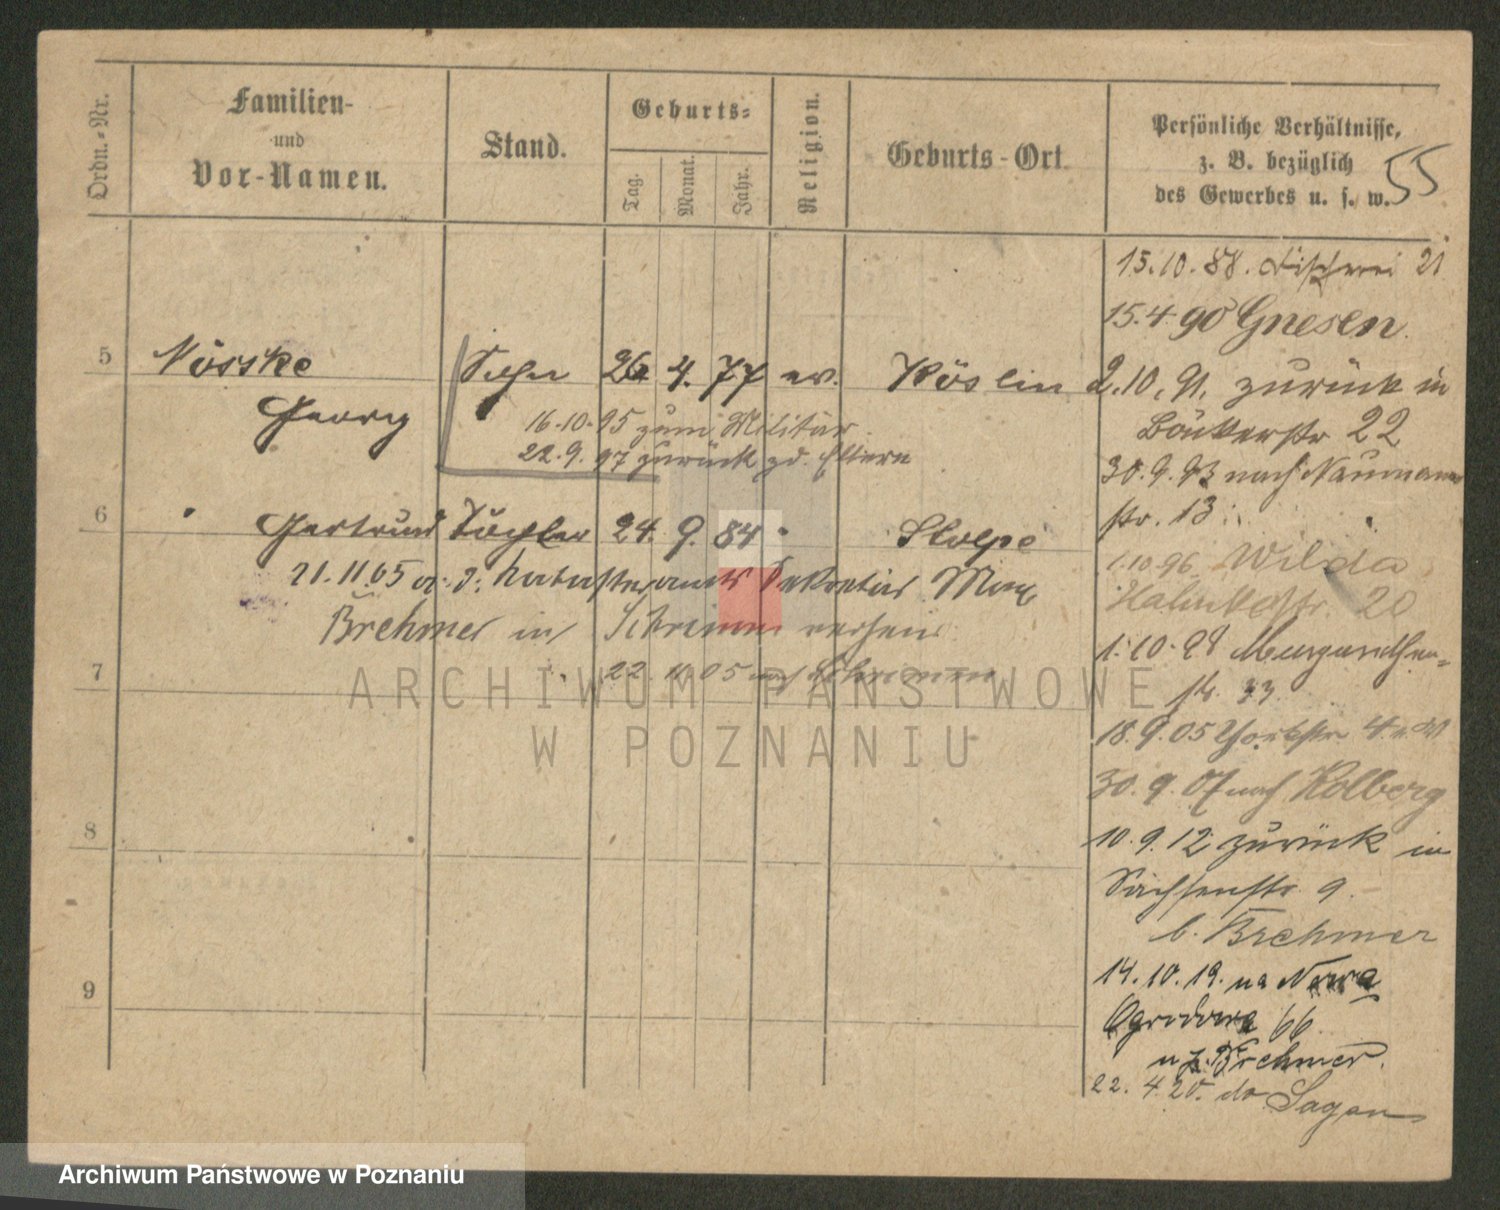 Ordn.-Nr.
Familien-
und
Vor-Namen.
Stand.
Geburts-
Tag.
Monat.
Jahr.
Religion.
Geburts-Ort
Persönliche Verhältnisse,
z. B. bezüglich
des Gewerbes u. s. w.
55
15.10.88. Fischerei 21
15.4.90 Gnesen.
5 Nösske Sohn 26 4. 77 ev. Köslin
Georg
16.10.95 zum Militär.
22.9.97 zurück zd. Eltern
2.10.91. zurück in
Bäckerstr 22
30.9.93 nach Naumann
str. 13.
6 Gertrud Tochter 24. 9. 84 Stolpe
21.11.05 a. d. Katasteramts Sekretär Max
Brehmer in Schrimm verh.
22.11.05 nach Schrimm
1.10.96 Wilda
Hahnkestr. 20
1.10.98
str. 33
18.9.05 Yorkstr 4
30.9.07 nach Kolberg
10.9.12 zurück in
Sachsenstr. 9.
b. Brehmer
14.10.19. na Nowa
Ogrodowa 66
u p. Brehmer.
22. 4 20. do Sagan
7
8
9
ARCHIWUM PAŃSTWOWE
W POZNANIU
Archiwum Państwowe w Poznaniu